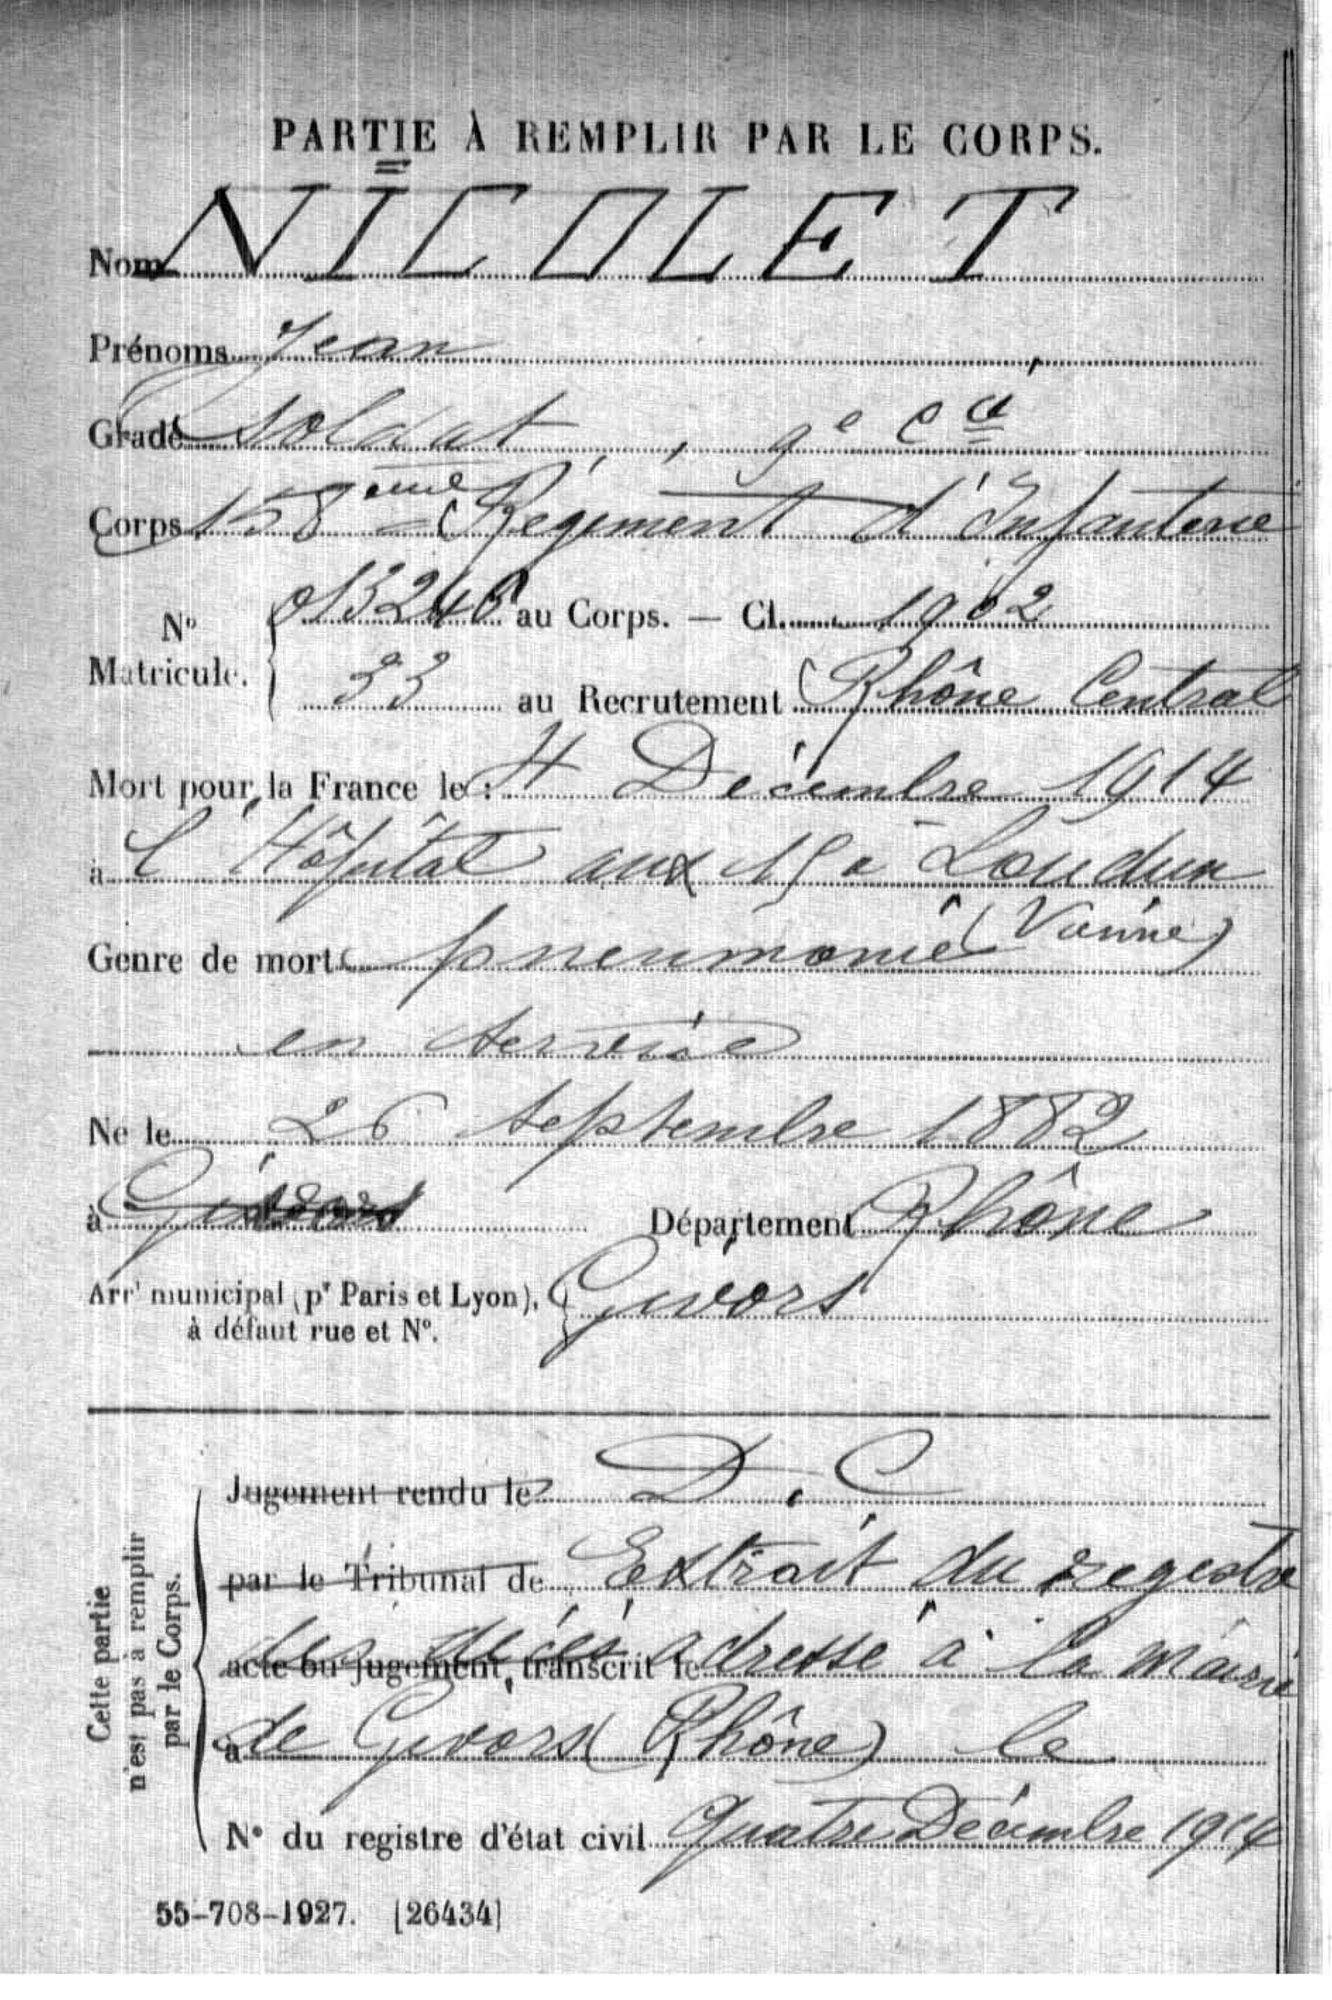 PARTIE À REMPLIR PAR LE CORPS.
Nom NICOLET
Prénoms Jean
Grade Soldat, 9e Cie
Corps 158eme Régiment d'Infanterie
No Matricule. 013246 au Corps. — Cl. 1902
33 au Recrutement Rhône Central
Mort pour la France le : 4 Décembre 1914
à l'Hôpital aux 15 a Loudun
(Vienne)
Genre de mort pneumonie
en service
Né le 26 Septembre 1882
à Givors Département Rhône
Arrt municipal (pr Paris et Lyon), Givors
à défaut rue et No.
Jugement rendu le D. C
par le Tribunal de Extrait du registre
acte ou jugement, transcrit le des décès adressé à la mairie
à de Givors (Rhône) le
No du registre d'état civil quatre Décembre 1914
Cette partie
n'est pas à remplir
par le Corps.
55-708-1927. [26434]